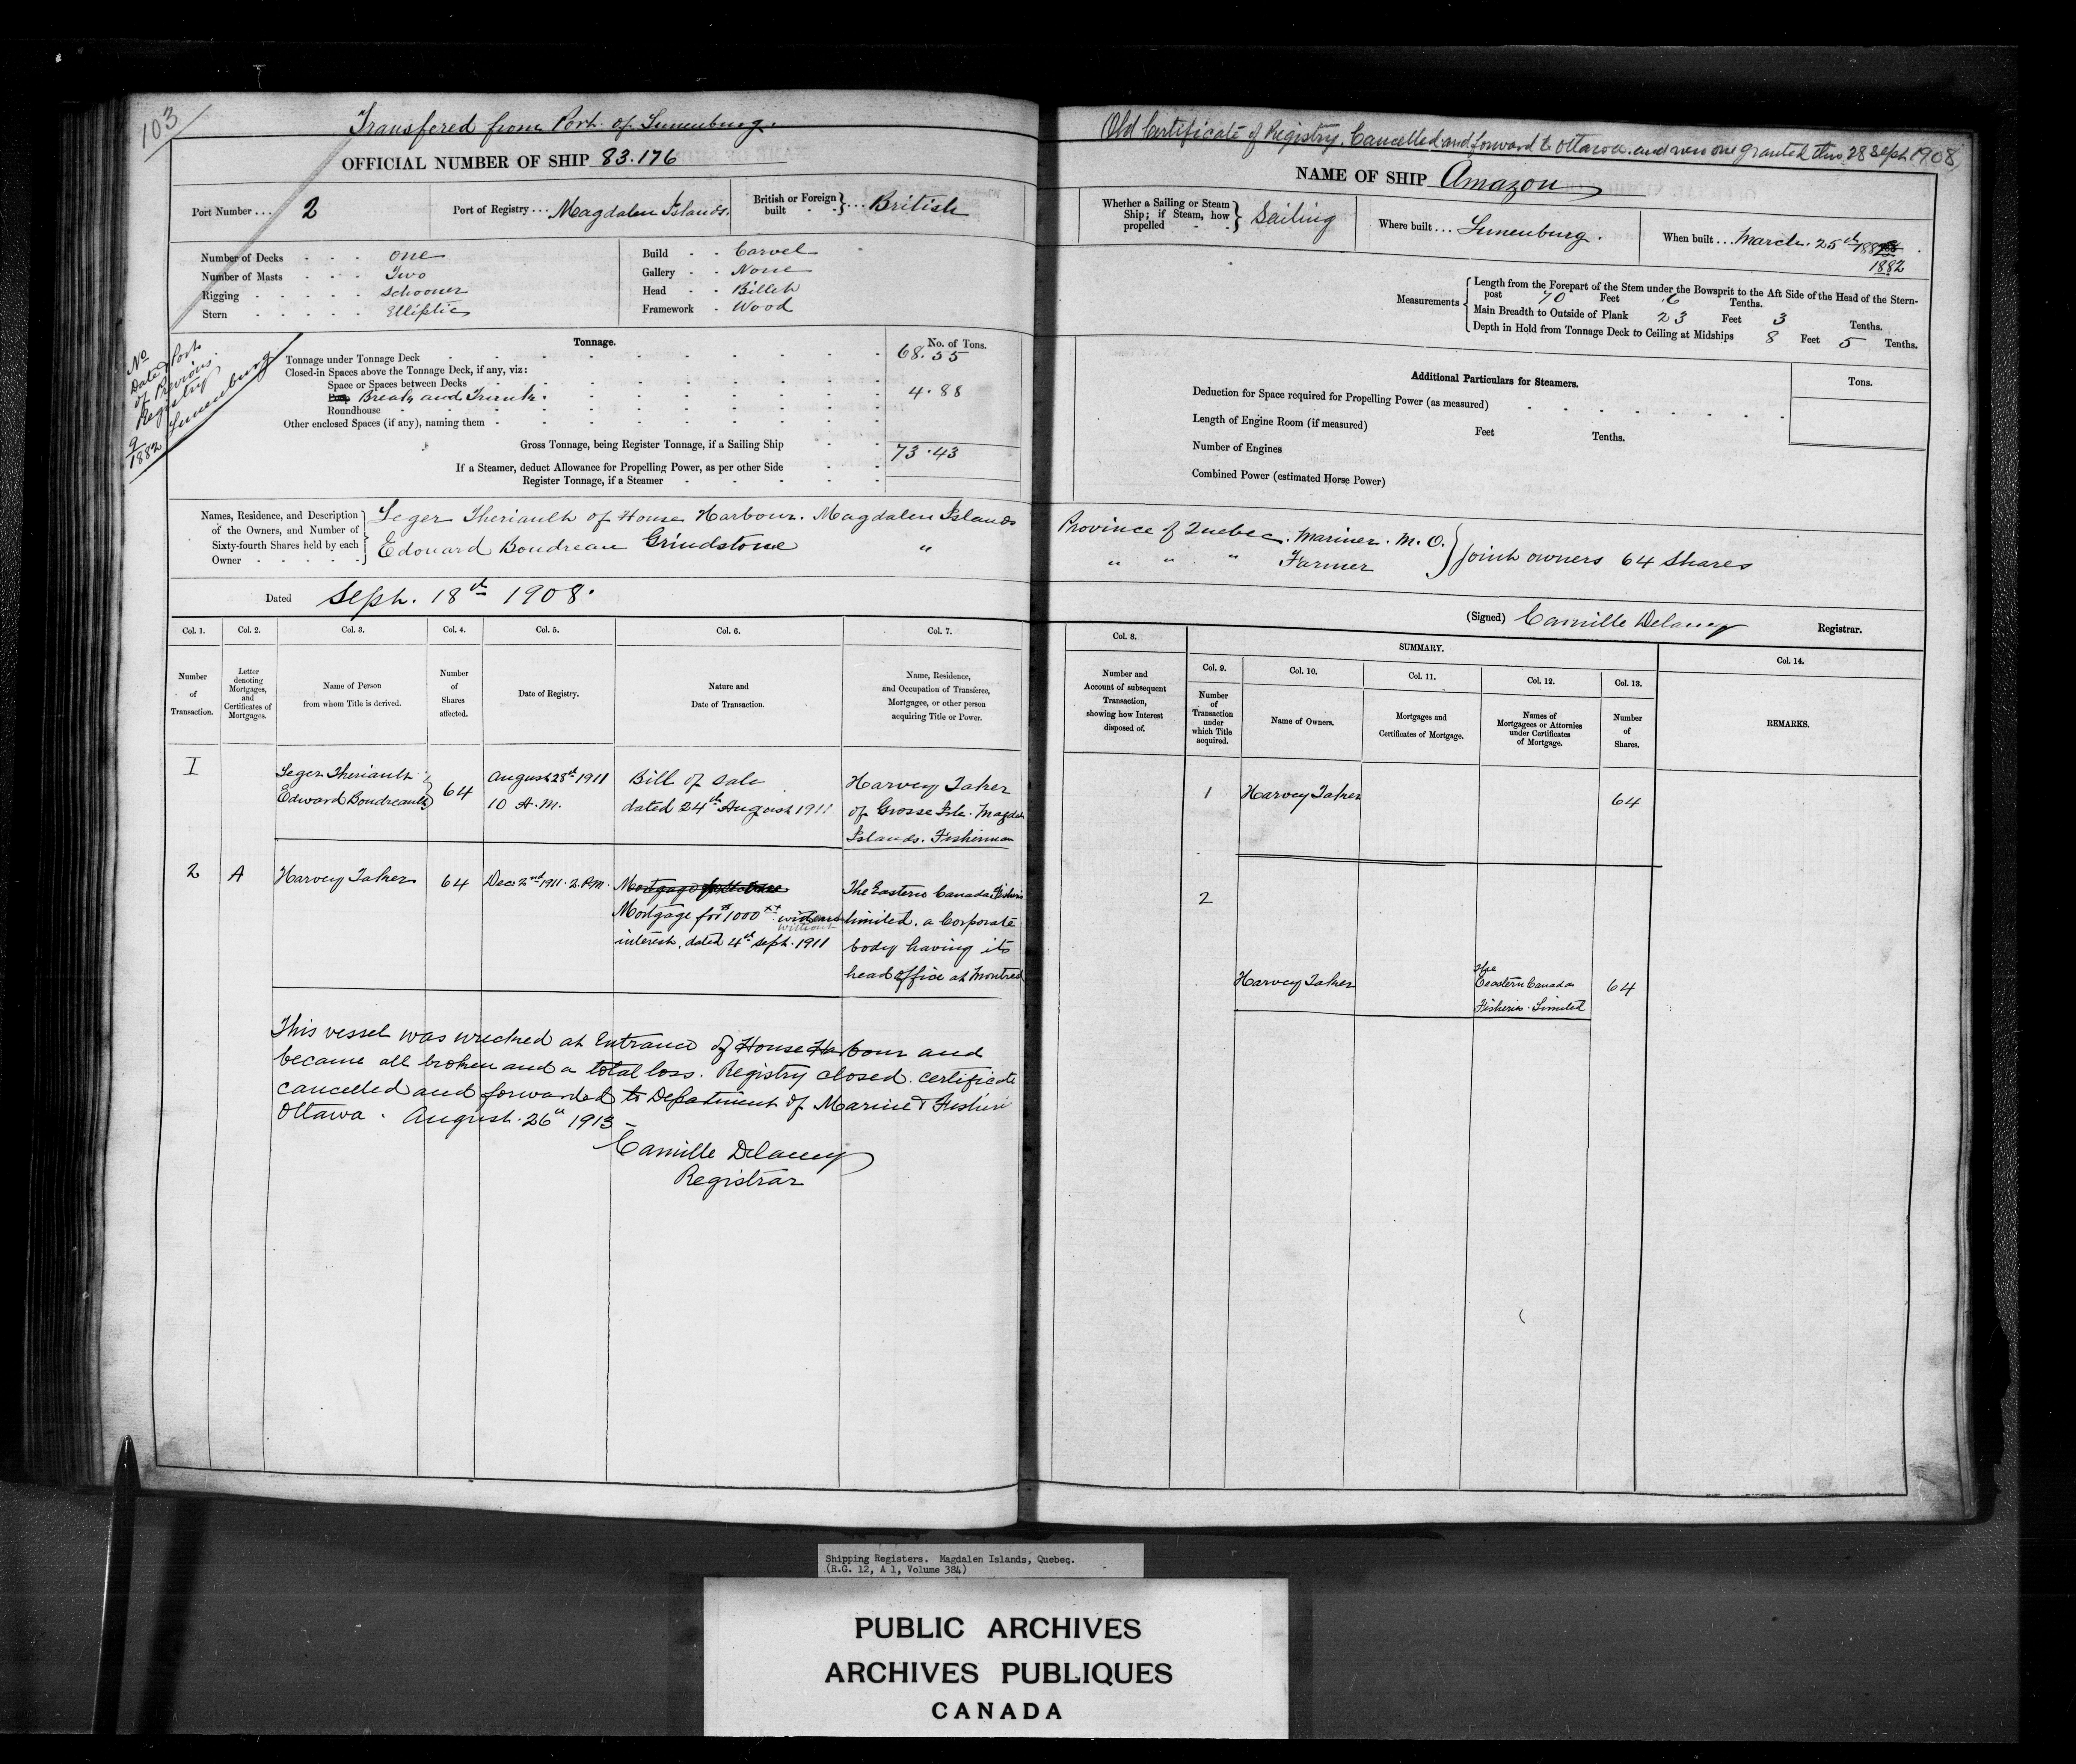 103
Transfered from Port of Lunenburg.
OFFICIAL NUMBER OF SHIP 83.176
Port Number ... 2
Port of Registry ... Magdalen Islands.
British or Foreign built } ... British
Number of Decks - - - one
Number of Masts - - - Two
Rigging - - - - - Schooner
Stern - - - - - Elliptic
Build - - Carvel
Gallery - - None
Head - - Billet
Framework - Wood
No
Date & Port
of Previous
Registry
9
1882 Lunenburg
Tonnage.
No. of Tons.
Tonnage under Tonnage Deck 68.55
Closed-in Spaces above the Tonnage Deck, if any, viz:
Space or Spaces between Decks
Poop Break and Trunk. 4.88
Roundhouse
Other enclosed Spaces (if any), naming them
Gross Tonnage, being Register Tonnage, if a Sailing Ship 73.43
If a Steamer, deduct Allowance for Propelling Power, as per other Side
Register Tonnage, if a Steamer
Names, Residence, and Description
of the Owners, and Number of
Sixty-fourth Shares held by each
Owner
Leger Theriault of House Harbour. Magdalen Islands
Edouard Boudreau Grindstone "
Dated Sept. 18th 1908.
Col. 1.
Number
of
Transaction.
Col. 2.
Letter
denoting
Mortgages,
and
Certificates of
Mortgages.
Col. 3.
Name of Person
from whom Title is derived.
Col. 4.
Number
of
Shares
affected.
Col. 5.
Date of Registry.
Col. 6.
Nature and
Date of Transaction.
Col. 7.
Name, Residence,
and Occupation of Transferee,
Mortgagee, or other person
acquiring Title or Power.
I
Leger Theriault
Edward Boudreault
64
August 28th 1911
10 A.M.
Bill of Sale
dated 24th August 1911
Harvey Taker
of Grosse Isle. Magda
Islands. Fisherman
2
A
Harvey Taker
64
Dec. 2nd 1911. 2. P.M.
Mortgage
Mortgage for $1000 xx without
without
interest, dated 4th Sept. 1911
The Eastern Canada Fisheries
limited. a Corporate
body having its
head office at Montreal
This vessel was wrecked at Entrance of House Harbour and
became all broken and a total loss. Registry closed. certificate
cancelled and forwarded to Department of Marine & Fisheri
Ottawa. August. 26th 1913 -
Camille Delaney
Registrar
Old Certificate of Registry. Cancelled and forward to Ottawa. and new one granted this 28 Sept 1908
NAME OF SHIP Amazon
Whether a Sailing or Steam
Ship; if Steam, how
propelled } Sailing
Where built ... Lunenburg.
When built ... March. 25th 188
1882
Measurements
Length from the Forepart of the Stem under the Bowsprit to the Aft Side of the Head of the Stern-
post 70 Feet .6 Tenths.
Main Breadth to Outside of Plank 23 Feet 3 Tenths.
Depth in Hold from Tonnage Deck to Ceiling at Midships 8 Feet 5 Tenths.
Additional Particulars for Steamers.
Tons.
Deduction for Space required for Propelling Power (as measured)
Length of Engine Room (if measured) Feet Tenths.
Number of Engines
Combined Power (estimated Horse Power)
Province of Quebec. Mariner. M.O. } Joint owners 64 Shares
" " " Farmer
(Signed) Camille Delaney Registrar.
Col. 8.
Number and
Account of subsequent
Transaction,
showing how Interest
disposed of.
SUMMARY.
Col. 9.
Number
of
Transaction
under
which Title
acquired.
Col. 10.
Name of Owners.
Col. 11.
Mortgages and
Certificates of Mortgage.
Col. 12.
Names of
Mortgagees or Attornies
under Certificates
of Mortgage.
Col. 13.
Number
of
Shares.
Col. 14.
REMARKS.
1
Harvey Taker
64
2
Harvey Taker
The
Eeastern Canada
Fisheries. Limited
64
Shipping Registers. Magdalen Islands, Quebec.
(R.G. 12, A 1, Volume 384)
PUBLIC ARCHIVES
ARCHIVES PUBLIQUES
CANADA